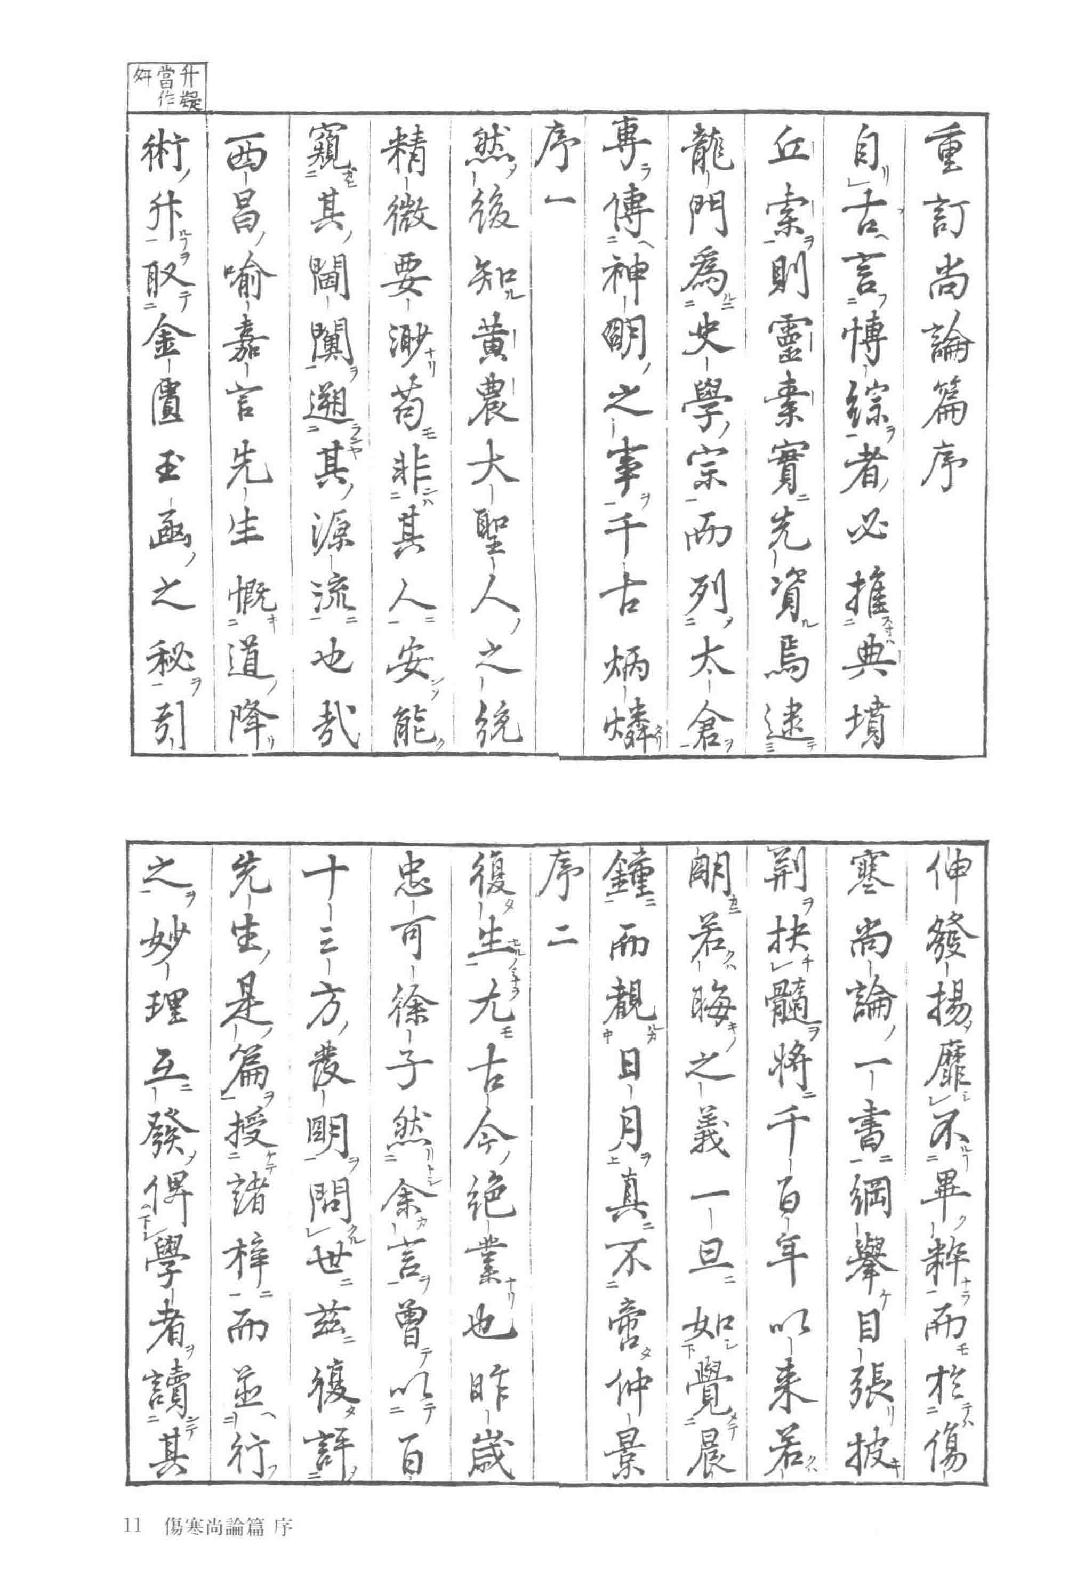 升疑
當作
妍
重訂尚論篇序
自古言博綜者必推典墳
丘索則靈素實先資焉逮
龍門爲史學宗而列太倉
專傳神明之事千古炳燐
序一
然後知黃農大聖人之統
精微要渺苟非其人安能
窺其閫闑遡其源流也哉
西昌喻嘉言先生慨道降
術升取金匱玉函之秘引
伸發揚靡不畢粹而於傷
寒尚論一書綱擧目張披
荆抉髓將千百年以来若
明若晦之義一旦如覺晨
鐘而覩日月真不啻仲景
序二
復生尤古今絶業也昨歲
忠可徐子然余言曾以百
十三方發明問世茲復評
先生是篇授諸梓而並行
之妙理互發俾學者讀其
11　傷寒尚論篇 序